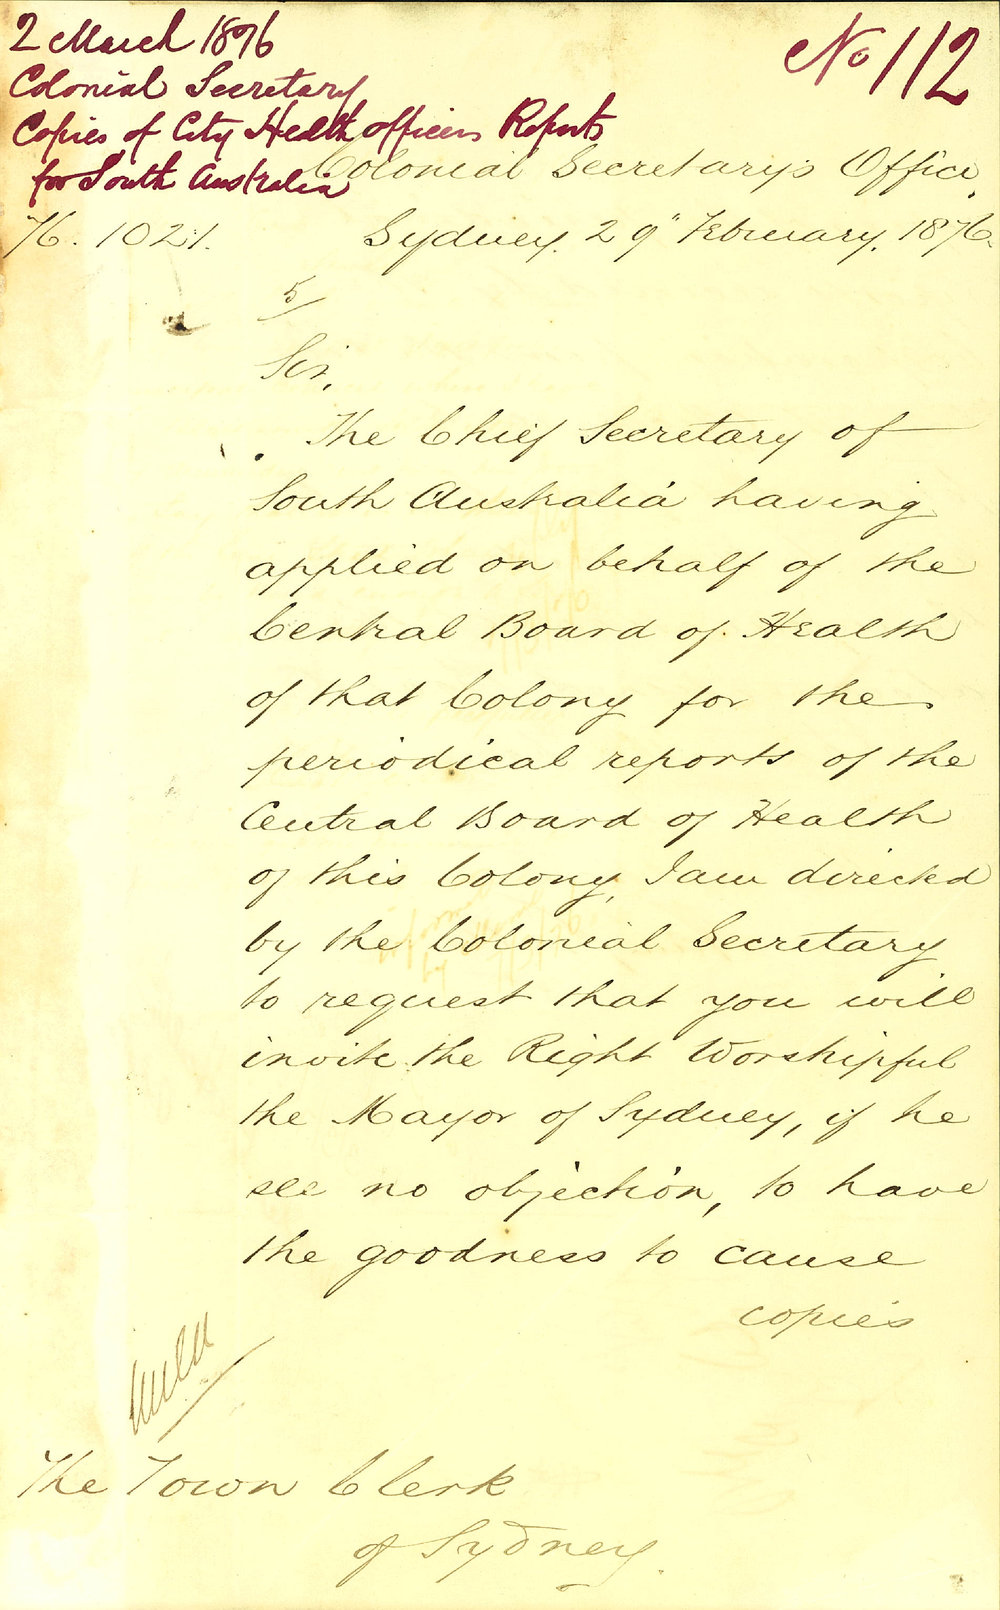 2 March 1876
No 112
Colonial Secretary
Copies of City Health officers Reports
for South Australia
Colonial Secretary's Office,
76. 1021.
Sydney. 29" February. 1876.
5
Sir,
The Chief Secretary of
South Australia having
applied on behalf of the
Central Board of Health
of that Colony for the
periodical reports of the
Central Board of Health
of this Colony, I am directed
by the Colonial Secretary
to request that you will
invite the Right Worshipful
the Mayor of Sydney, if he
see no objection, to have
the goodness to cause
copies
The Town Clerk
of Sydney.